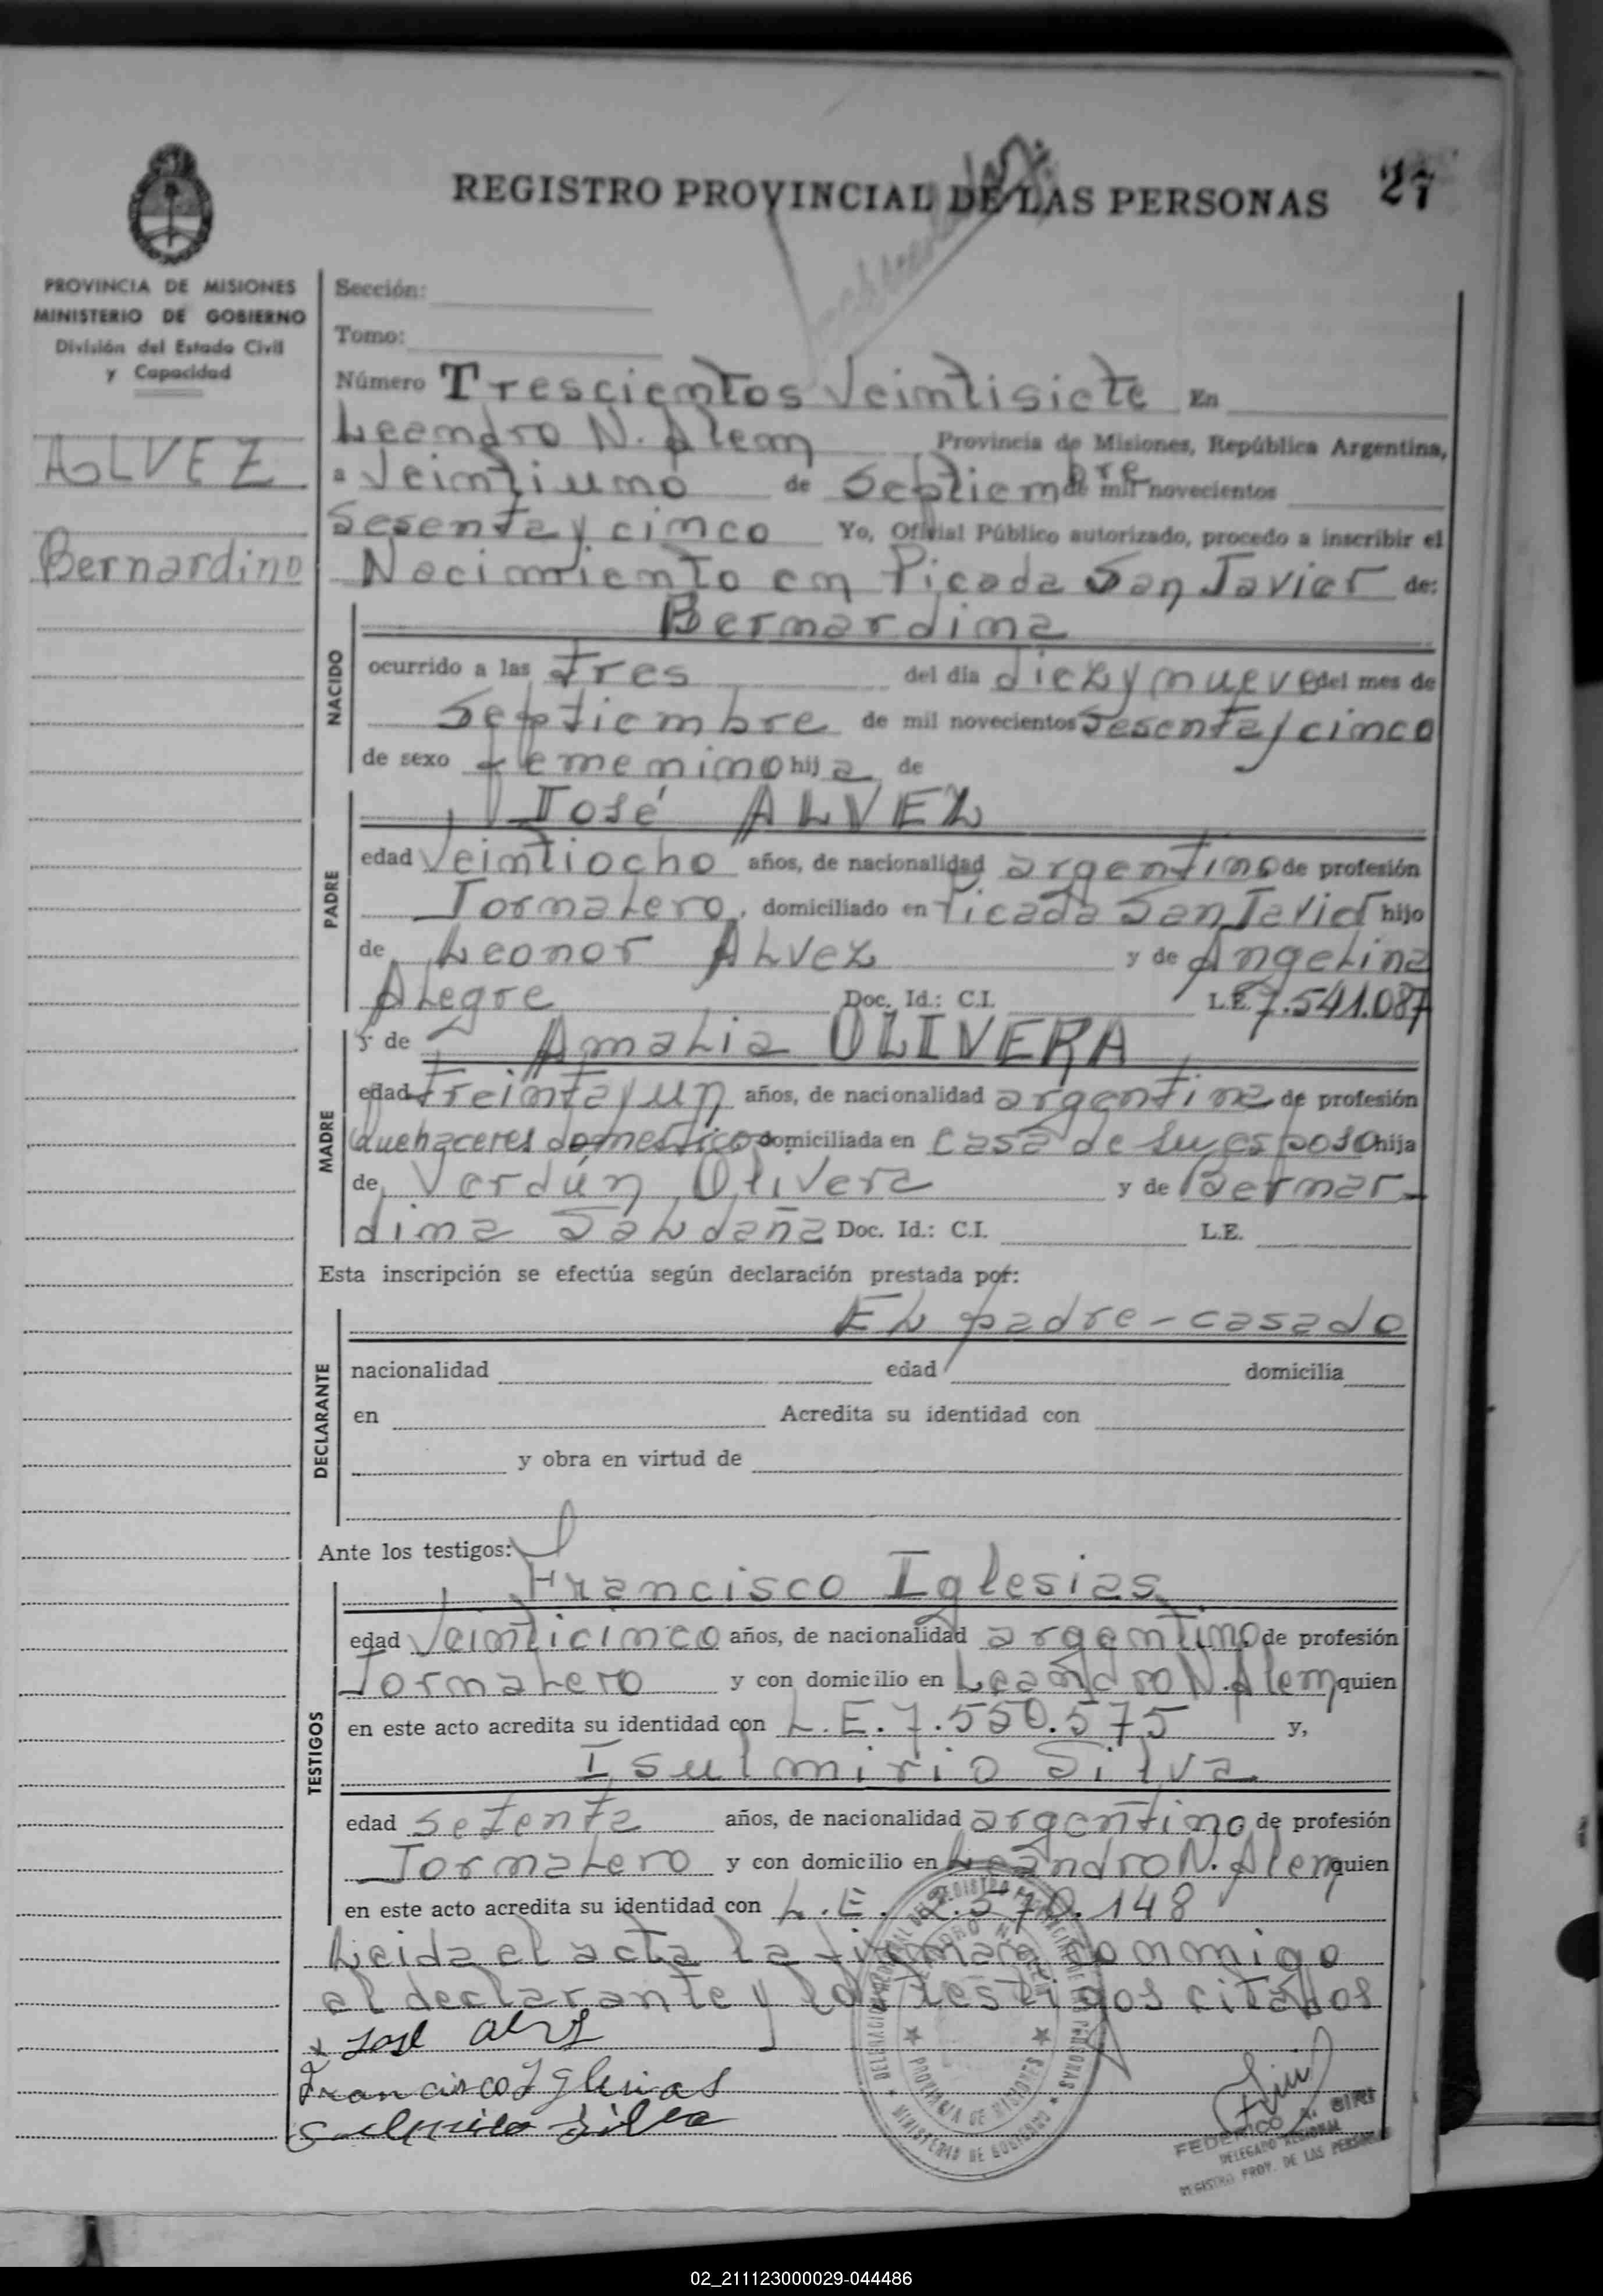 REGISTRO PROVINCIAL DE LAS PERSONAS 27
PROVINCIA DE MISIONES
MINISTERIO DE GOBIERNO
División del Estado Civil
y Capacidad
ALVEZ
Bernardino
Sección:
Tomo:
Número Trescientos Veintisiete En
Leandro N. Alem Provincia de Misiones, República Argentina,
a Veintiuno de Septiembre de mil novecientos
Sesenta y cinco Yo, Oficial Público autorizado, procedo a inscribir el
Nacimiento en Picada San Javier de:
NACIDO
Bernardina
ocurrido a las tres del día diez y nueve del mes de
Septiembre de mil novecientos Sesenta y cinco
de sexo femenino hija de
PADRE
José ALVEZ
edad Veintiocho años, de nacionalidad argentino de profesión
Jornalero, domiciliado en Picada San Javier hijo
de Leonor Alvez y de Angelina
Alegre Doc. Id.: C.I. L.E. 7.541.087
MADRE
y de Amalia OLIVERA
edad treinta y un años, de nacionalidad argentina de profesión
Quehaceres domestico domiciliada en casa de su esposo hija
de Verdún Olivera y de Bernar-
dina Saldaña Doc. Id.: C.I. L.E.
Esta inscripción se efectúa según declaración prestada por:
DECLARANTE
El padre - casado
nacionalidad edad domicilia
en Acredita su identidad con
y obra en virtud de
Ante los testigos:
TESTIGOS
Francisco Iglesias
edad Veinticinco años, de nacionalidad argentino de profesión
Jornalero y con domicilio en Leandro N. Alem quien
en este acto acredita su identidad con L.E. 7.550.575 y,
Isulmirio Silva
edad setenta años, de nacionalidad argentino de profesión
Jornalero y con domicilio en Leandro N. Alem quien
en este acto acredita su identidad con L.E. 2.570.148
Leida el acta la firman conmigo
el declarante y los testigos citados
José
Francisco Iglesias
Silva
PROVINCIA DE MISIONES
MINISTERIO DE GOBIERNO
FEDERICO
DELEGADO REGIONAL
REGISTRO PROV. DE LAS PERSONAS
02_211123000029-044486